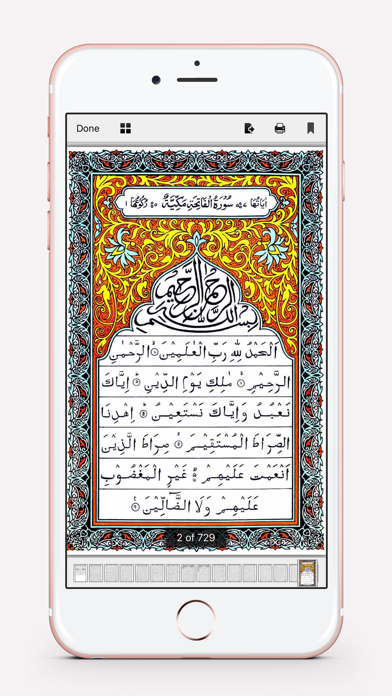 Done
اٰيَاتُهَا ٧ سُوْرَةُ الْفَاتِحَةِ مَكِّيَّةٌ ٥ رُكُوْعُهَا ١
بِسْمِ اللّٰهِ الرَّحْمٰنِ الرَّحِيْمِ
اَلْحَمْدُ لِلّٰهِ رَبِّ الْعٰلَمِيْنَ ۝١ الرَّحْمٰنِ
الرَّحِيْمِ ۝٢ مٰلِكِ يَوْمِ الدِّيْنِ ۝٣ اِيَّاكَ
نَعْبُدُ وَاِيَّاكَ نَسْتَعِيْنُ ۝٤ اِهْدِنَا
الصِّرَاطَ الْمُسْتَقِيْمَ ۝٥ صِرَاطَ الَّذِيْنَ
اَنْعَمْتَ عَلَيْهِمْ ۝٦ غَيْرِ الْمَغْضُوْبِ
عَلَيْهِمْ وَلَا الضَّآلِّيْنَ ۝٧
2 of 729